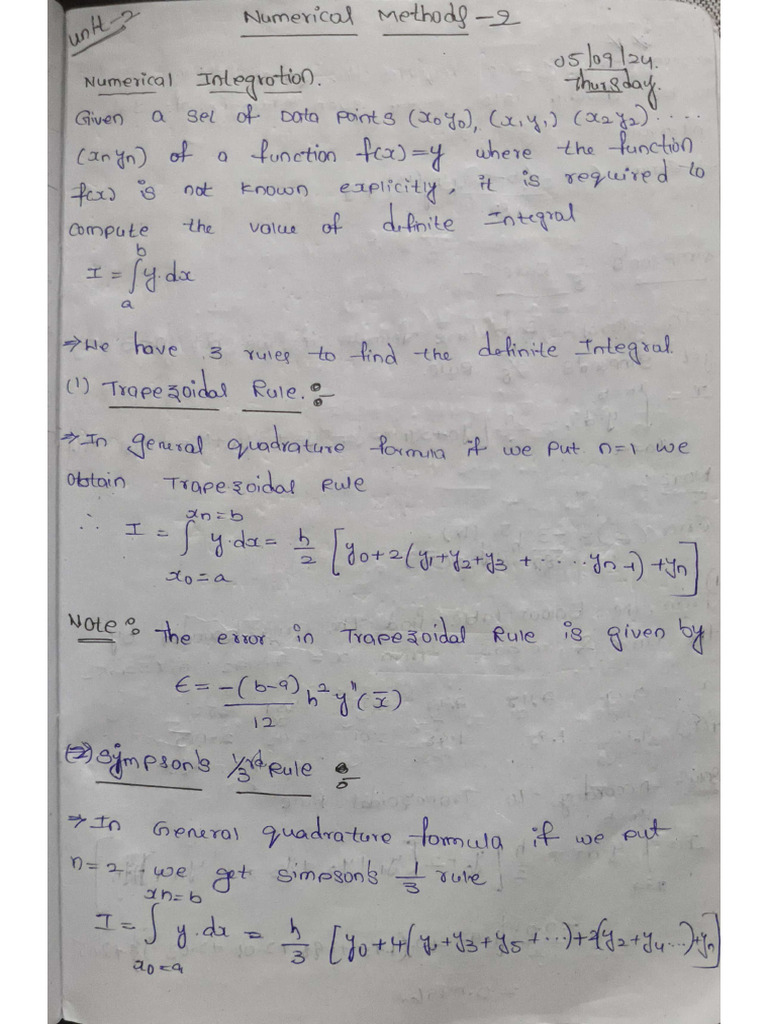 unit-2
Numerical Methods - 2
05/09/24.
Thursday.
Numerical Integration.
Given a set of Data points (x₀y₀), (x₁y₁) (x₂y₂).....
(xₙyₙ) of a function f(x)=y where the function
f(x) is not known explicitly, it is required to
compute the value of definite Integral
I = ∫ₐᵇ y.dx
⇒ We have 3 rules to find the definite Integral
(1) Trapezoidal Rule. :-
⇒ In general quadrature formula if we put n=1 we
obtain Trapezoidal Rule
∴ I = ∫_{x₀=a}^{xₙ=b} y.dx = h/2 [y₀+2(y₁+y₂+y₃ + ..... yₙ₋₁) + yₙ]
Note :- The error in Trapezoidal Rule is given by
∈ = -(b-a)/12 h² y"(x̄)
(2) Simpson's 1/3rd Rule :-
⇒ In General quadrature formula if we put
n=2 we get simpson's 1/3 rule
I = ∫_{x₀=a}^{xₙ=b} y.dx = h/3 [y₀+4(y₁+y₃+y₅+...)+2(y₂+y₄...)+yₙ]